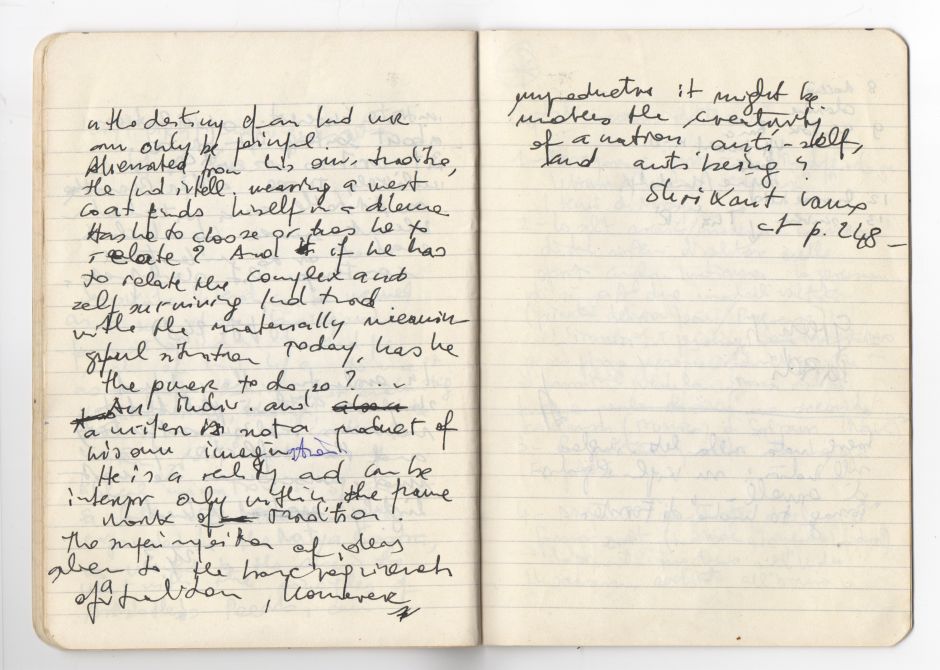 in the destiny of an Ind wr
can only be painful
Alienated from his own traditio,
the Ind intell wearing a west
coat finds himself in a dilema
Has he to choose or has he to
relate? And if he has
to relate the complex and
self surviving Ind trad
with the materially meanin
gful situation today, has he
the power to do so?
An indiv. and
a writer is not a product of
his own imagination
He is a reality and can be
interpr only within the frame
work of tradition.
the superimposition of ideas
alien to the basic requirements
of a tradition, however
unproductive it might be
makes the creativity
of a nation anti-self,
and anti being?
Shrikant
cf p. 248